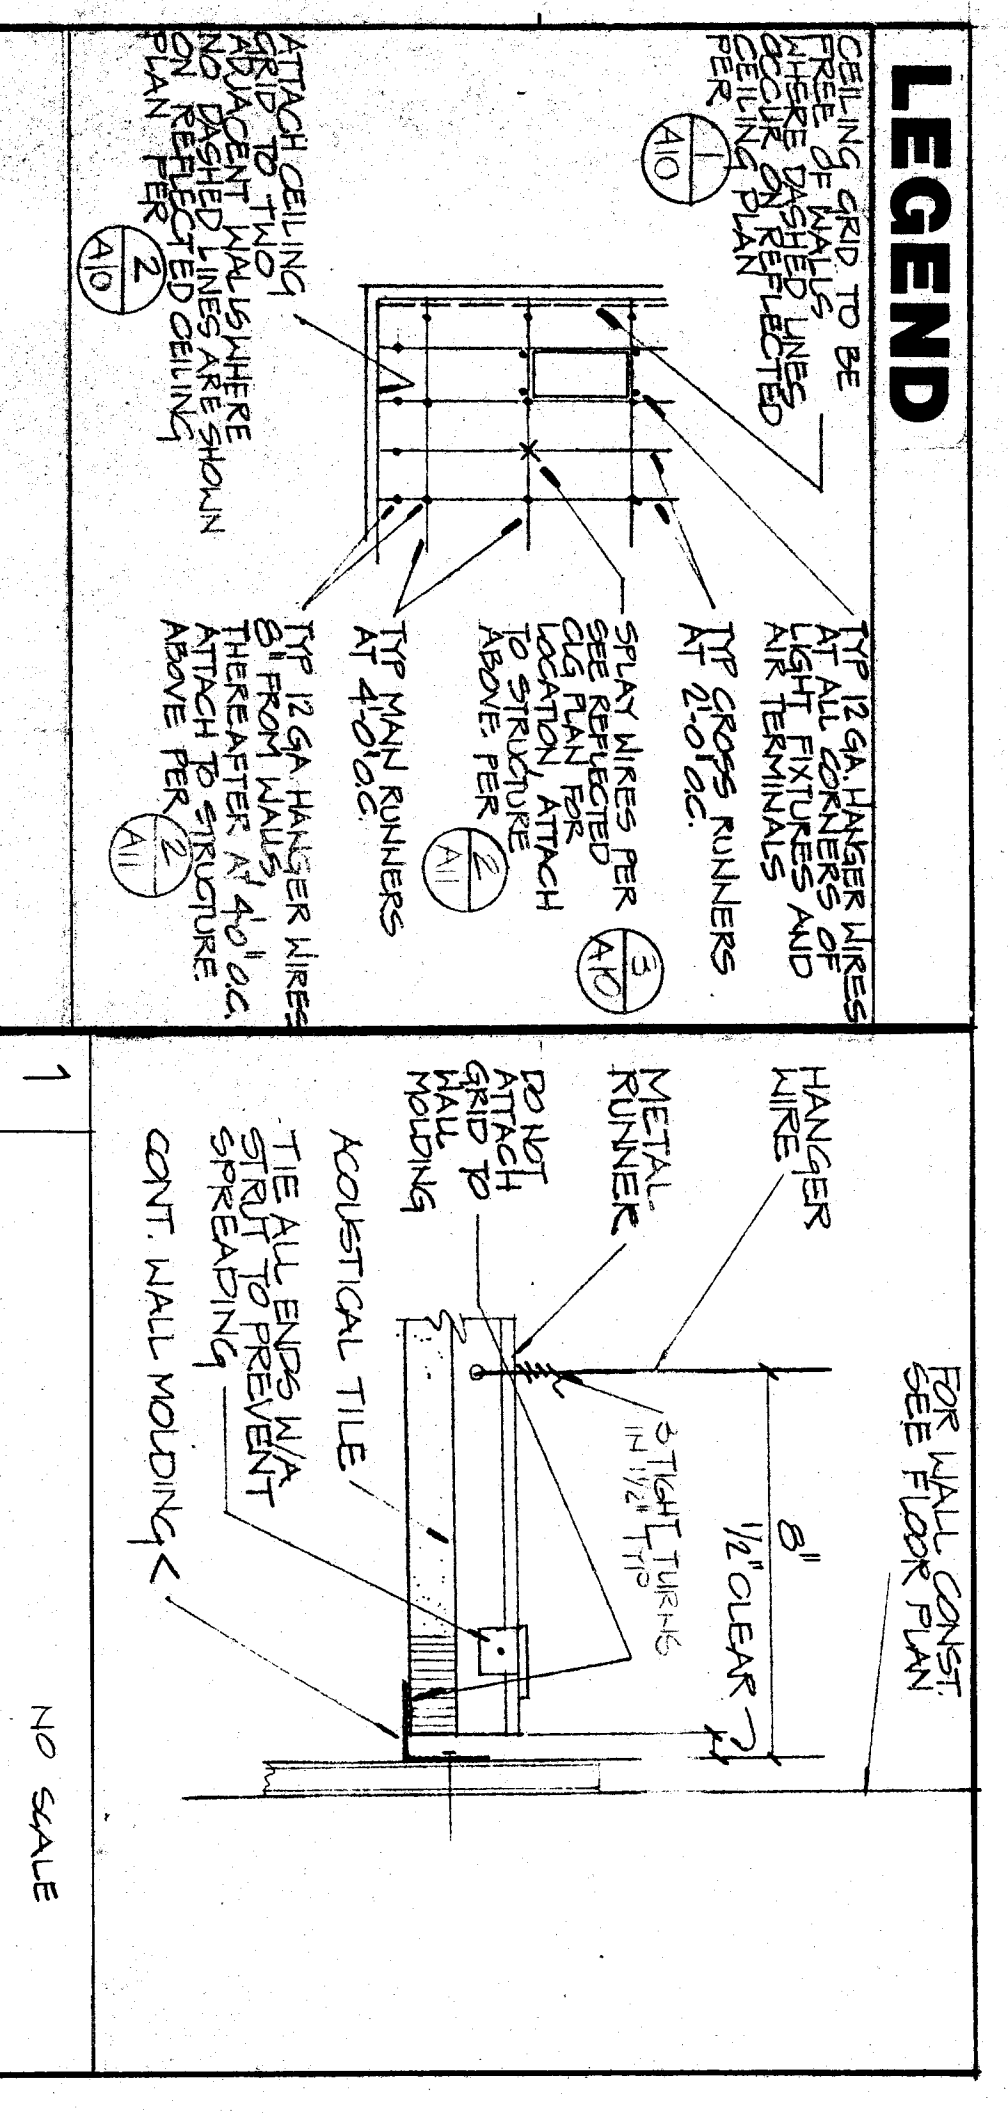 LEGEND
CEILING GRID TO BE
FREE OF WALLS
WHERE DASHED LINES
OCCUR ON REFLECTED
CEILING PLAN
PER
1
A10
ATTACH CEILING
GRID TO TWO
ADJACENT WALLS WHERE
NO DASHED LINES ARE SHOWN
ON REFLECTED CEILING
PLAN PER
2
A10
TYP 12 GA. HANGER WIRES
AT ALL CORNERS OF
LIGHT FIXTURES AND
AIR TERMINALS
TYP CROSS RUNNERS
AT 2'-0" O.C.
SPLAY WIRES PER
SEE REFLECTED
CLG PLAN FOR
LOCATION, ATTACH
TO STRUCTURE
ABOVE. PER
3
A10
2
A11
TYP MAIN RUNNERS
AT 4'-0" O.C.
TYP 12 GA. HANGER WIRES
8" FROM WALLS
THEREAFTER AT 4'0" O.C.
ATTACH TO STRUCTURE
ABOVE PER
2
A11
FOR WALL CONST.
SEE FLOOR PLAN
HANGER
WIRE
8"
1/2" CLEAR
METAL
RUNNER
3 TIGHT TURNS
IN 1 1/2" TYP
DO NOT
ATTACH
GRID TO
WALL
MOLDING
ACOUSTICAL TILE
TIE ALL ENDS W/A
STRUT TO PREVENT
SPREADING
CONT. WALL MOLDING <
1
NO SCALE